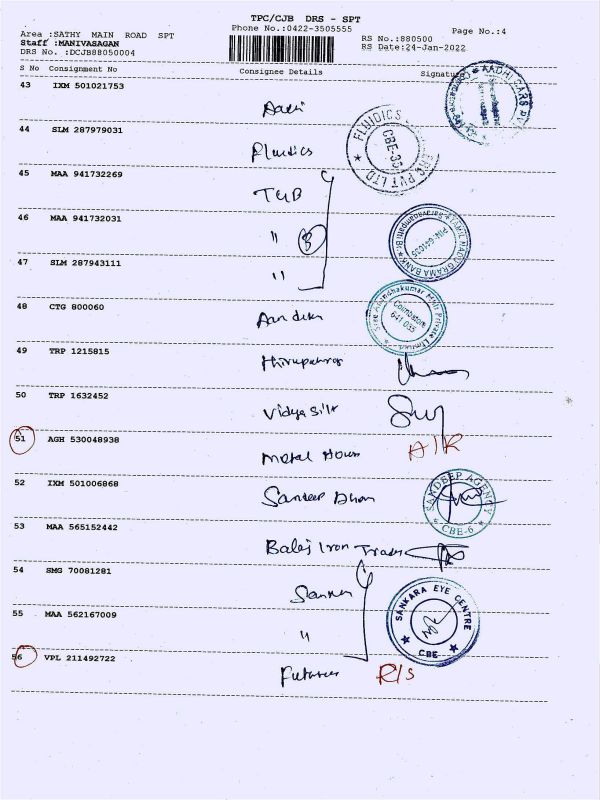 TPC/CJB DRS - SPT
Area :SATHY MAIN ROAD SPT
Phone No.:0422-3505555
Page No.:4
Staff :MANIVASAGAN
RS No.:880500
DRS No. :DCJB88050004
RS Date:24-Jan-2022
S No Consignment No Consignee Details Signature
43 IXM 501021753
Aadhi
AADHI CARS PVT
44 SLM 287979031
Fluidics
FLUIDICS PVT LTD
CBE-35
45 MAA 941732269
TGB
46 MAA 941732031
" 3
TAMIL NADU GRAMA BANK
PIN-641035
47 SLM 287943111
"
48 CTG 800060
Coimbatore
641 035
49 TRP 1215815
50 TRP 1632452
Vidya Silk
51 AGH 530048938
Metal House
A/R
52 IXM 501006868
Sandeep
SANDEEP AGENCY
CBE-6
53 MAA 565152442
Balaji Iron Traders
54 SMG 70081281
Sankara
55 MAA 562167009
"
SANKARA EYE CENTRE
CBE
56 VPL 211492722
Futures
R/S